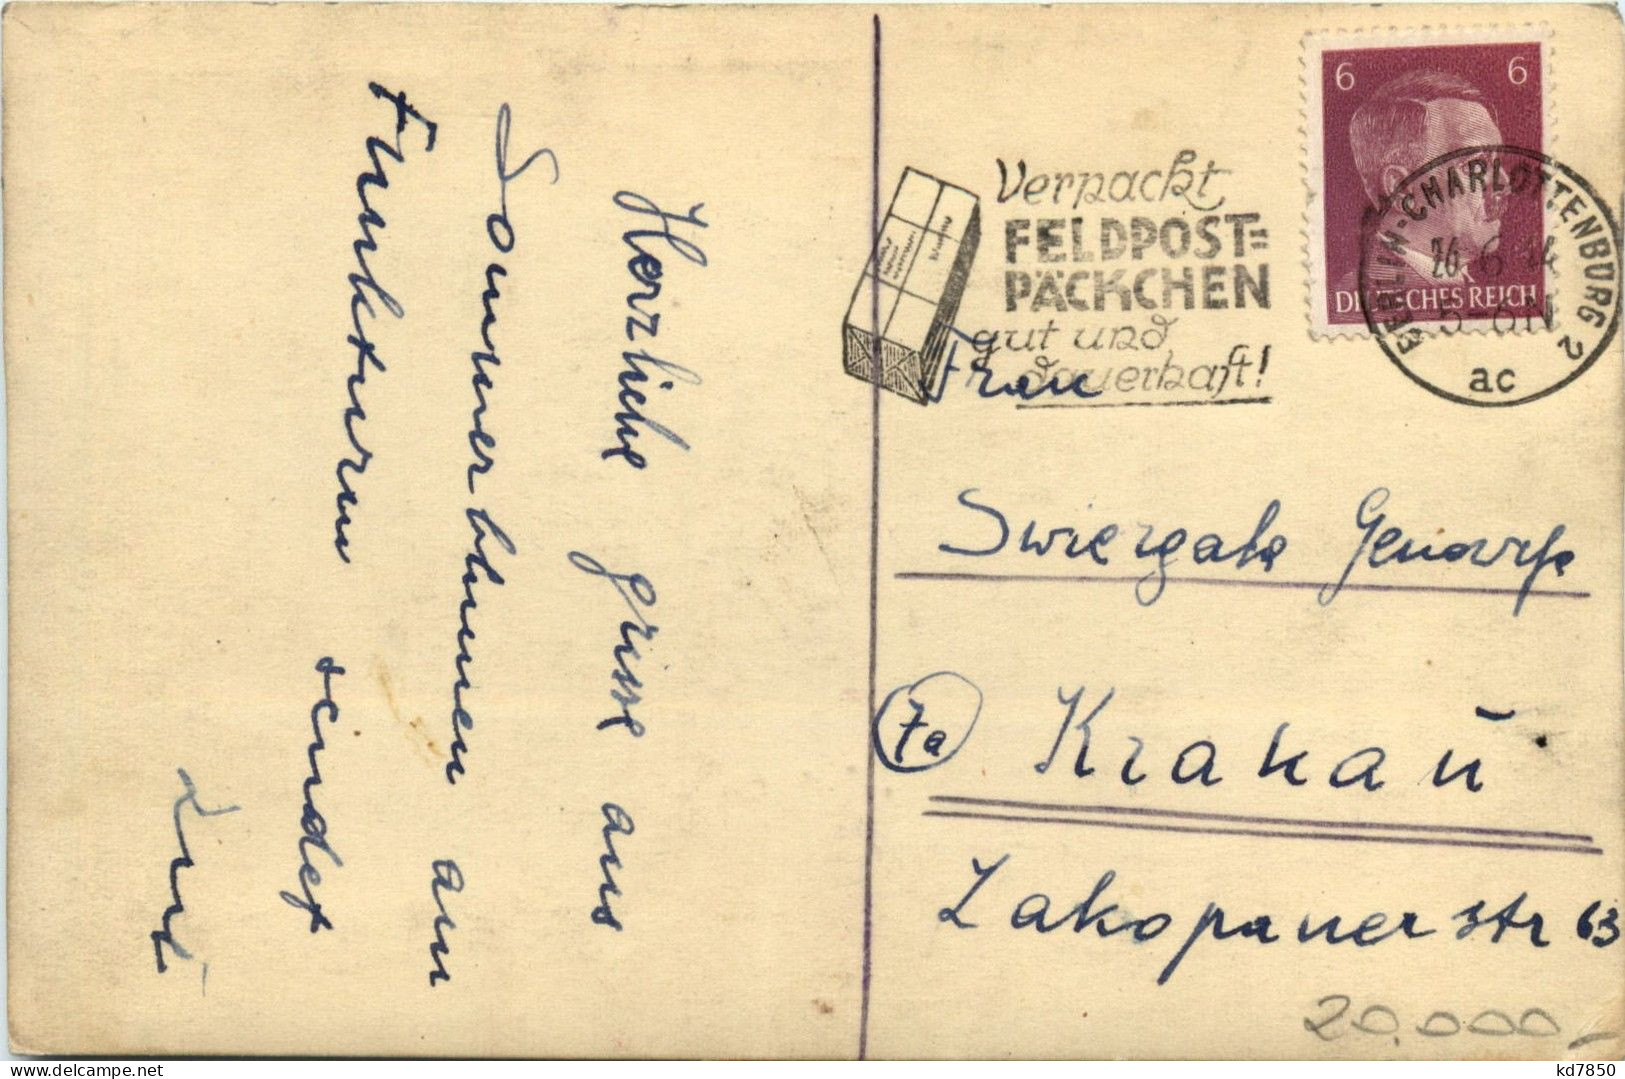 Herzliche grüsse aus
Sommerblumen am
Funkturm sendet
6 6
DEUTSCHES REICH
BERLIN-CHARLOTTENBURG 2
26.6.44
ac
Verpackt
FELDPOST=
PÄCKCHEN
gut und
dauerhaft!
Frau
Swiergala Genowefa
7a
Krakau
Zakopanerstr 63
20.000,-
kd7850